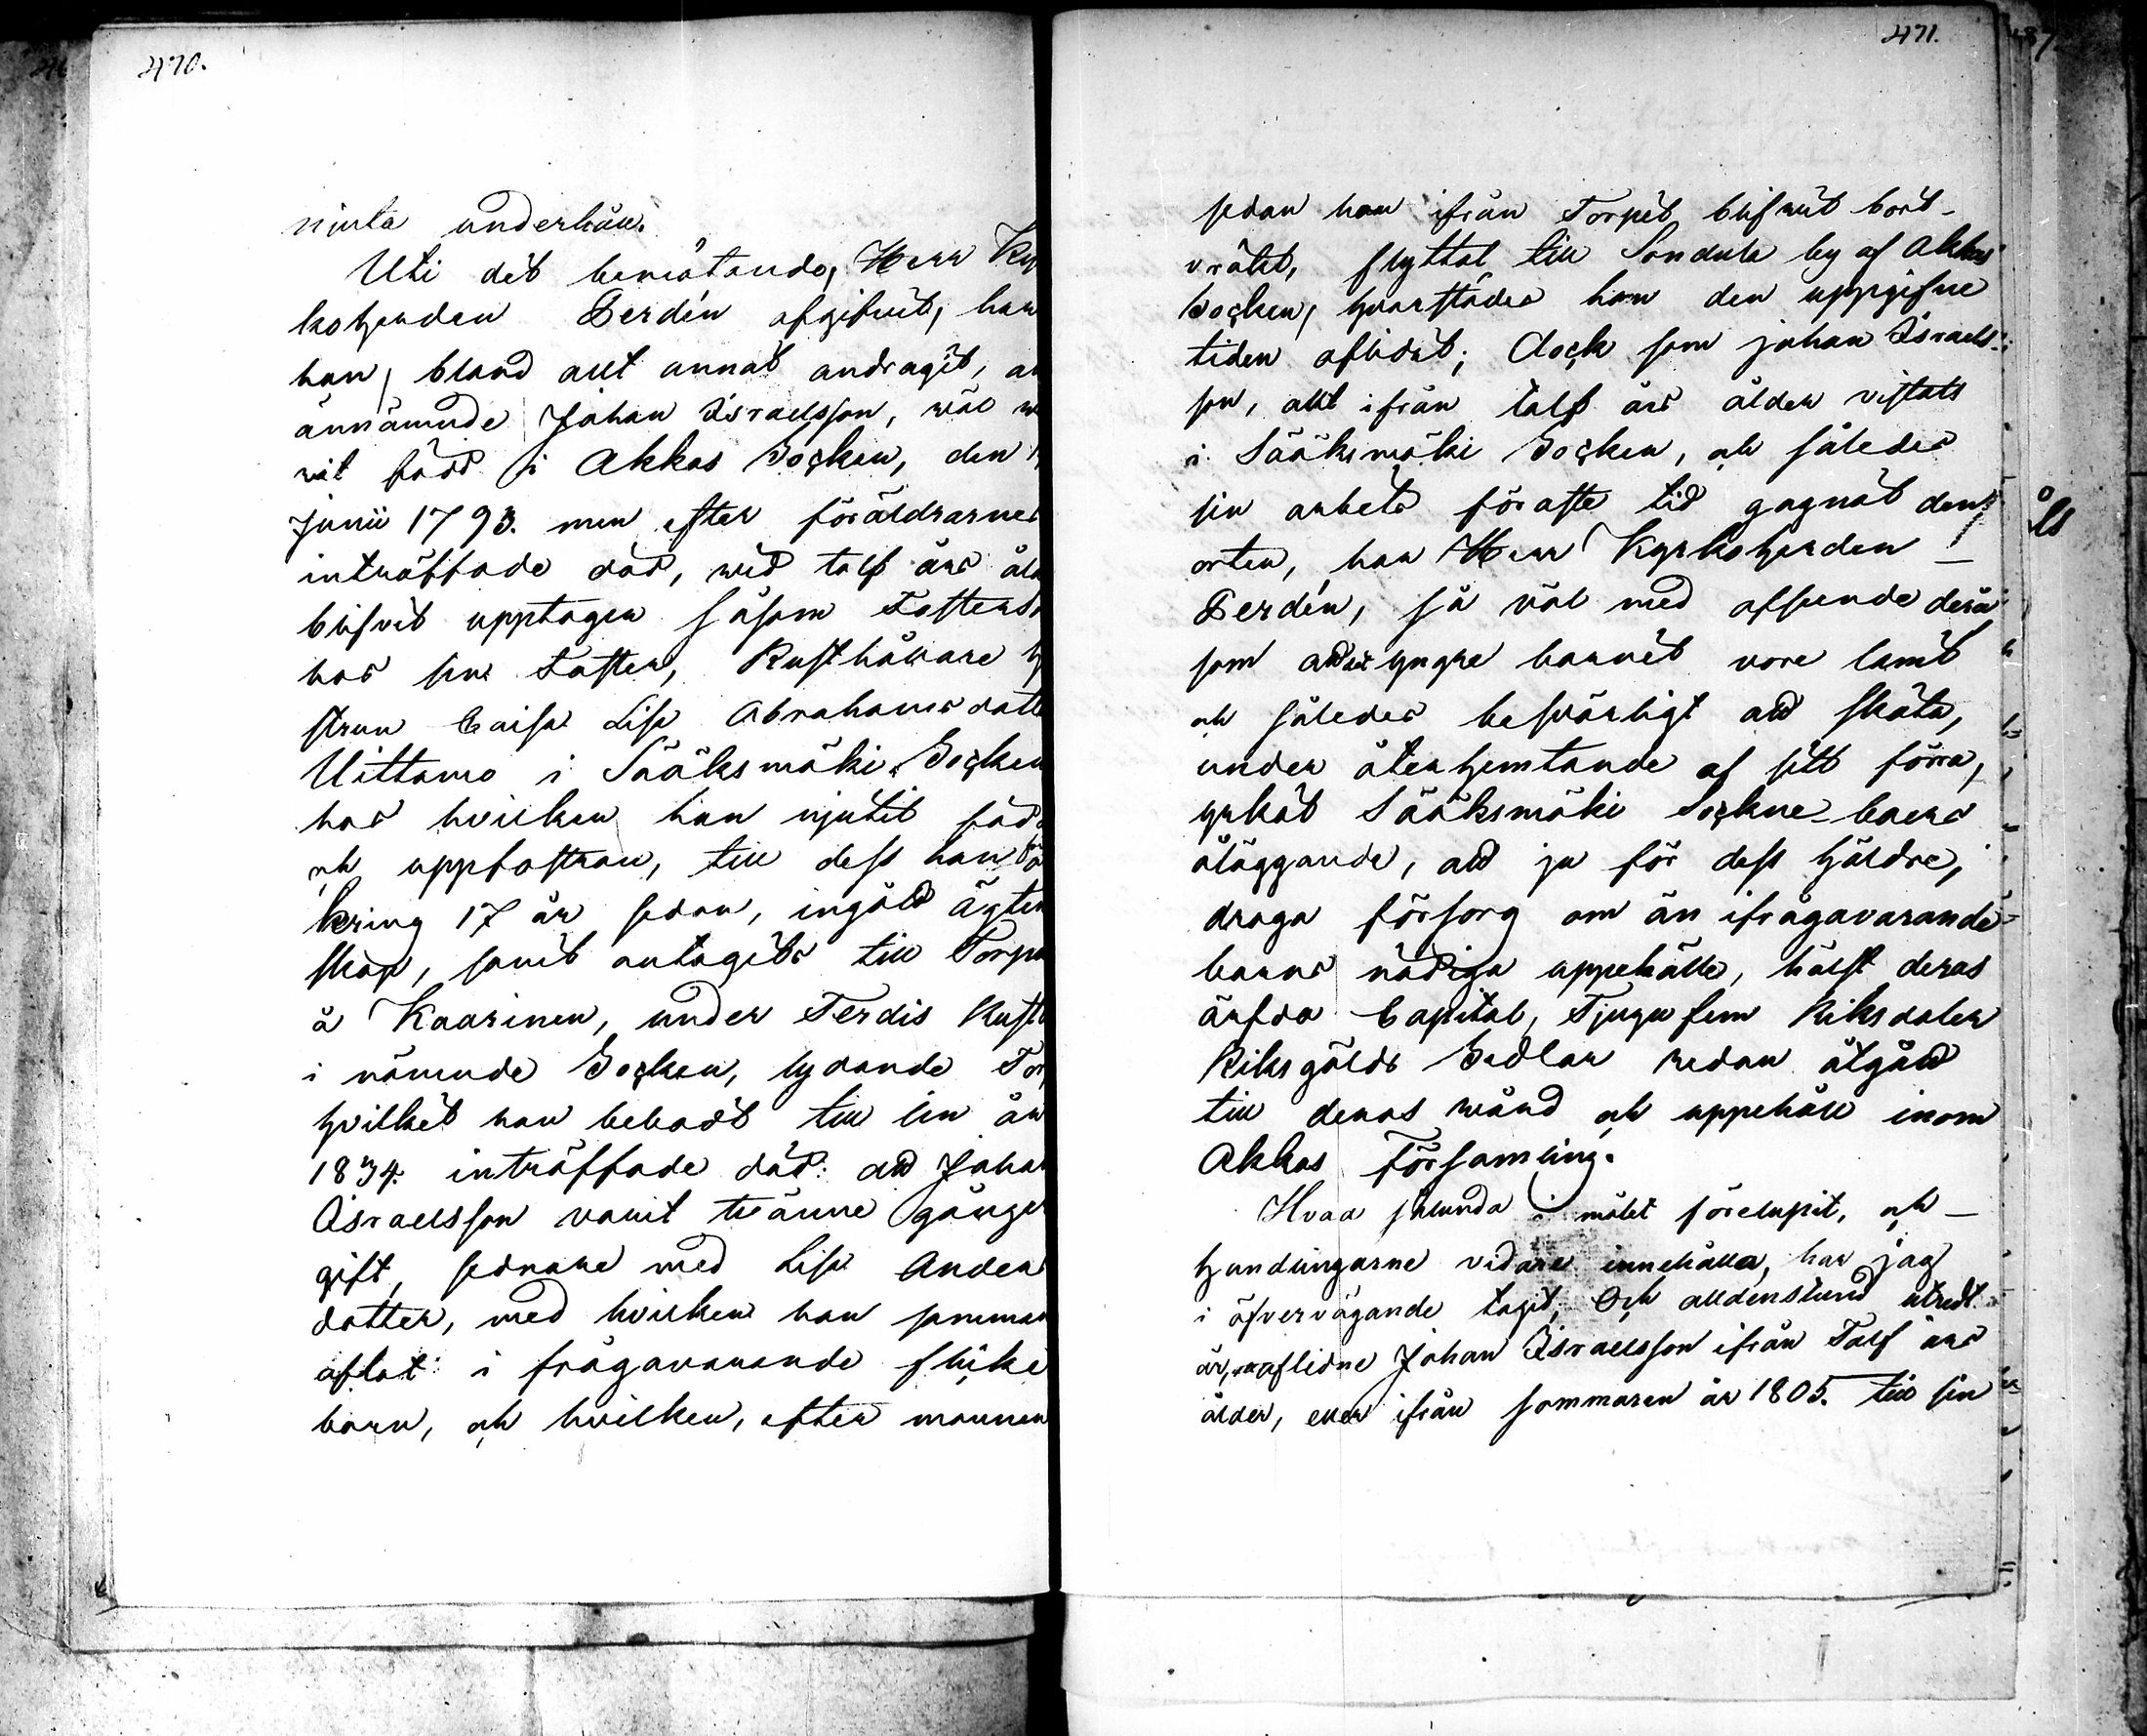 470.
njuta underhåll.
Uti det bemötande, Herr Kyr
koherden Perdén afgifvit, har
han, bland allt annat andragit, at
ännämnde Johan Israelsson, wäl wa
rit född i Akkas Socken, den
Junii 1793. men efter föräldrarnes
inträffade död, wid tolf års åld
blifvit upptagen såsom Fosterso
hos sin Faster, Rusthållare H
strun Caisa Lisa Abrahamsdott
Uittamo i Sääksmäki Socken
hos hvilken han njutit föd
och uppfostran, till dess han
kring 17 år sedan, ingått Ägten
skap, samt antagits till Torpa
å Kaarinen, under Terdis Rusth
i nämnde Socken, lydande Tor
hvilket han bebodt till sin år
1834. inträffade död: att Johan
Israelsson varit tvänne gånger
gift, sednare med Lisa Anders
dotter, med hvilken han samman
aflat i frågavarande flicke
barn, och hvilken, efter mannen
471.
sedan hon ifrån Torpet blifvit bort-
vräkt, flyttat till Sondula by af Akkas
Socken, hvarstädes hon den uppgifne
tiden aflidit; Dock som Johan Israels-
son, allt ifrån tolf års ålder vistats
i Sääksmäki Socken, och således
sin arbets förasste tid gagnat den
orten, har Herr Kyrkoherden
Perdén, så väl med afseende derå
som att yngre barnet vore lamt
och således besvärligt att sköta,
under återhemtande af sitt förra,
yrkat Sääksmäki Sockne-boers
åläggande, att ju för dess häldre,
draga försorg om än ifrågavarande
barns nödiga uppehälle, hälst deras
ärfda Capital, Tjugu fem Riksdaler
Riksgälds Sedlar redan åtgått
till deras wård och uppehåll inom
Akkas Församling.
Hvad sålunda i målet förelupit, och
handlingarne vidare innehålla, har jag
i öfvervägande tagit, Och alldenstund utredt
är, aflidne Johan Israelsson ifrån Tolf års
ålder, eller ifrån sommaren år 1805. till sin